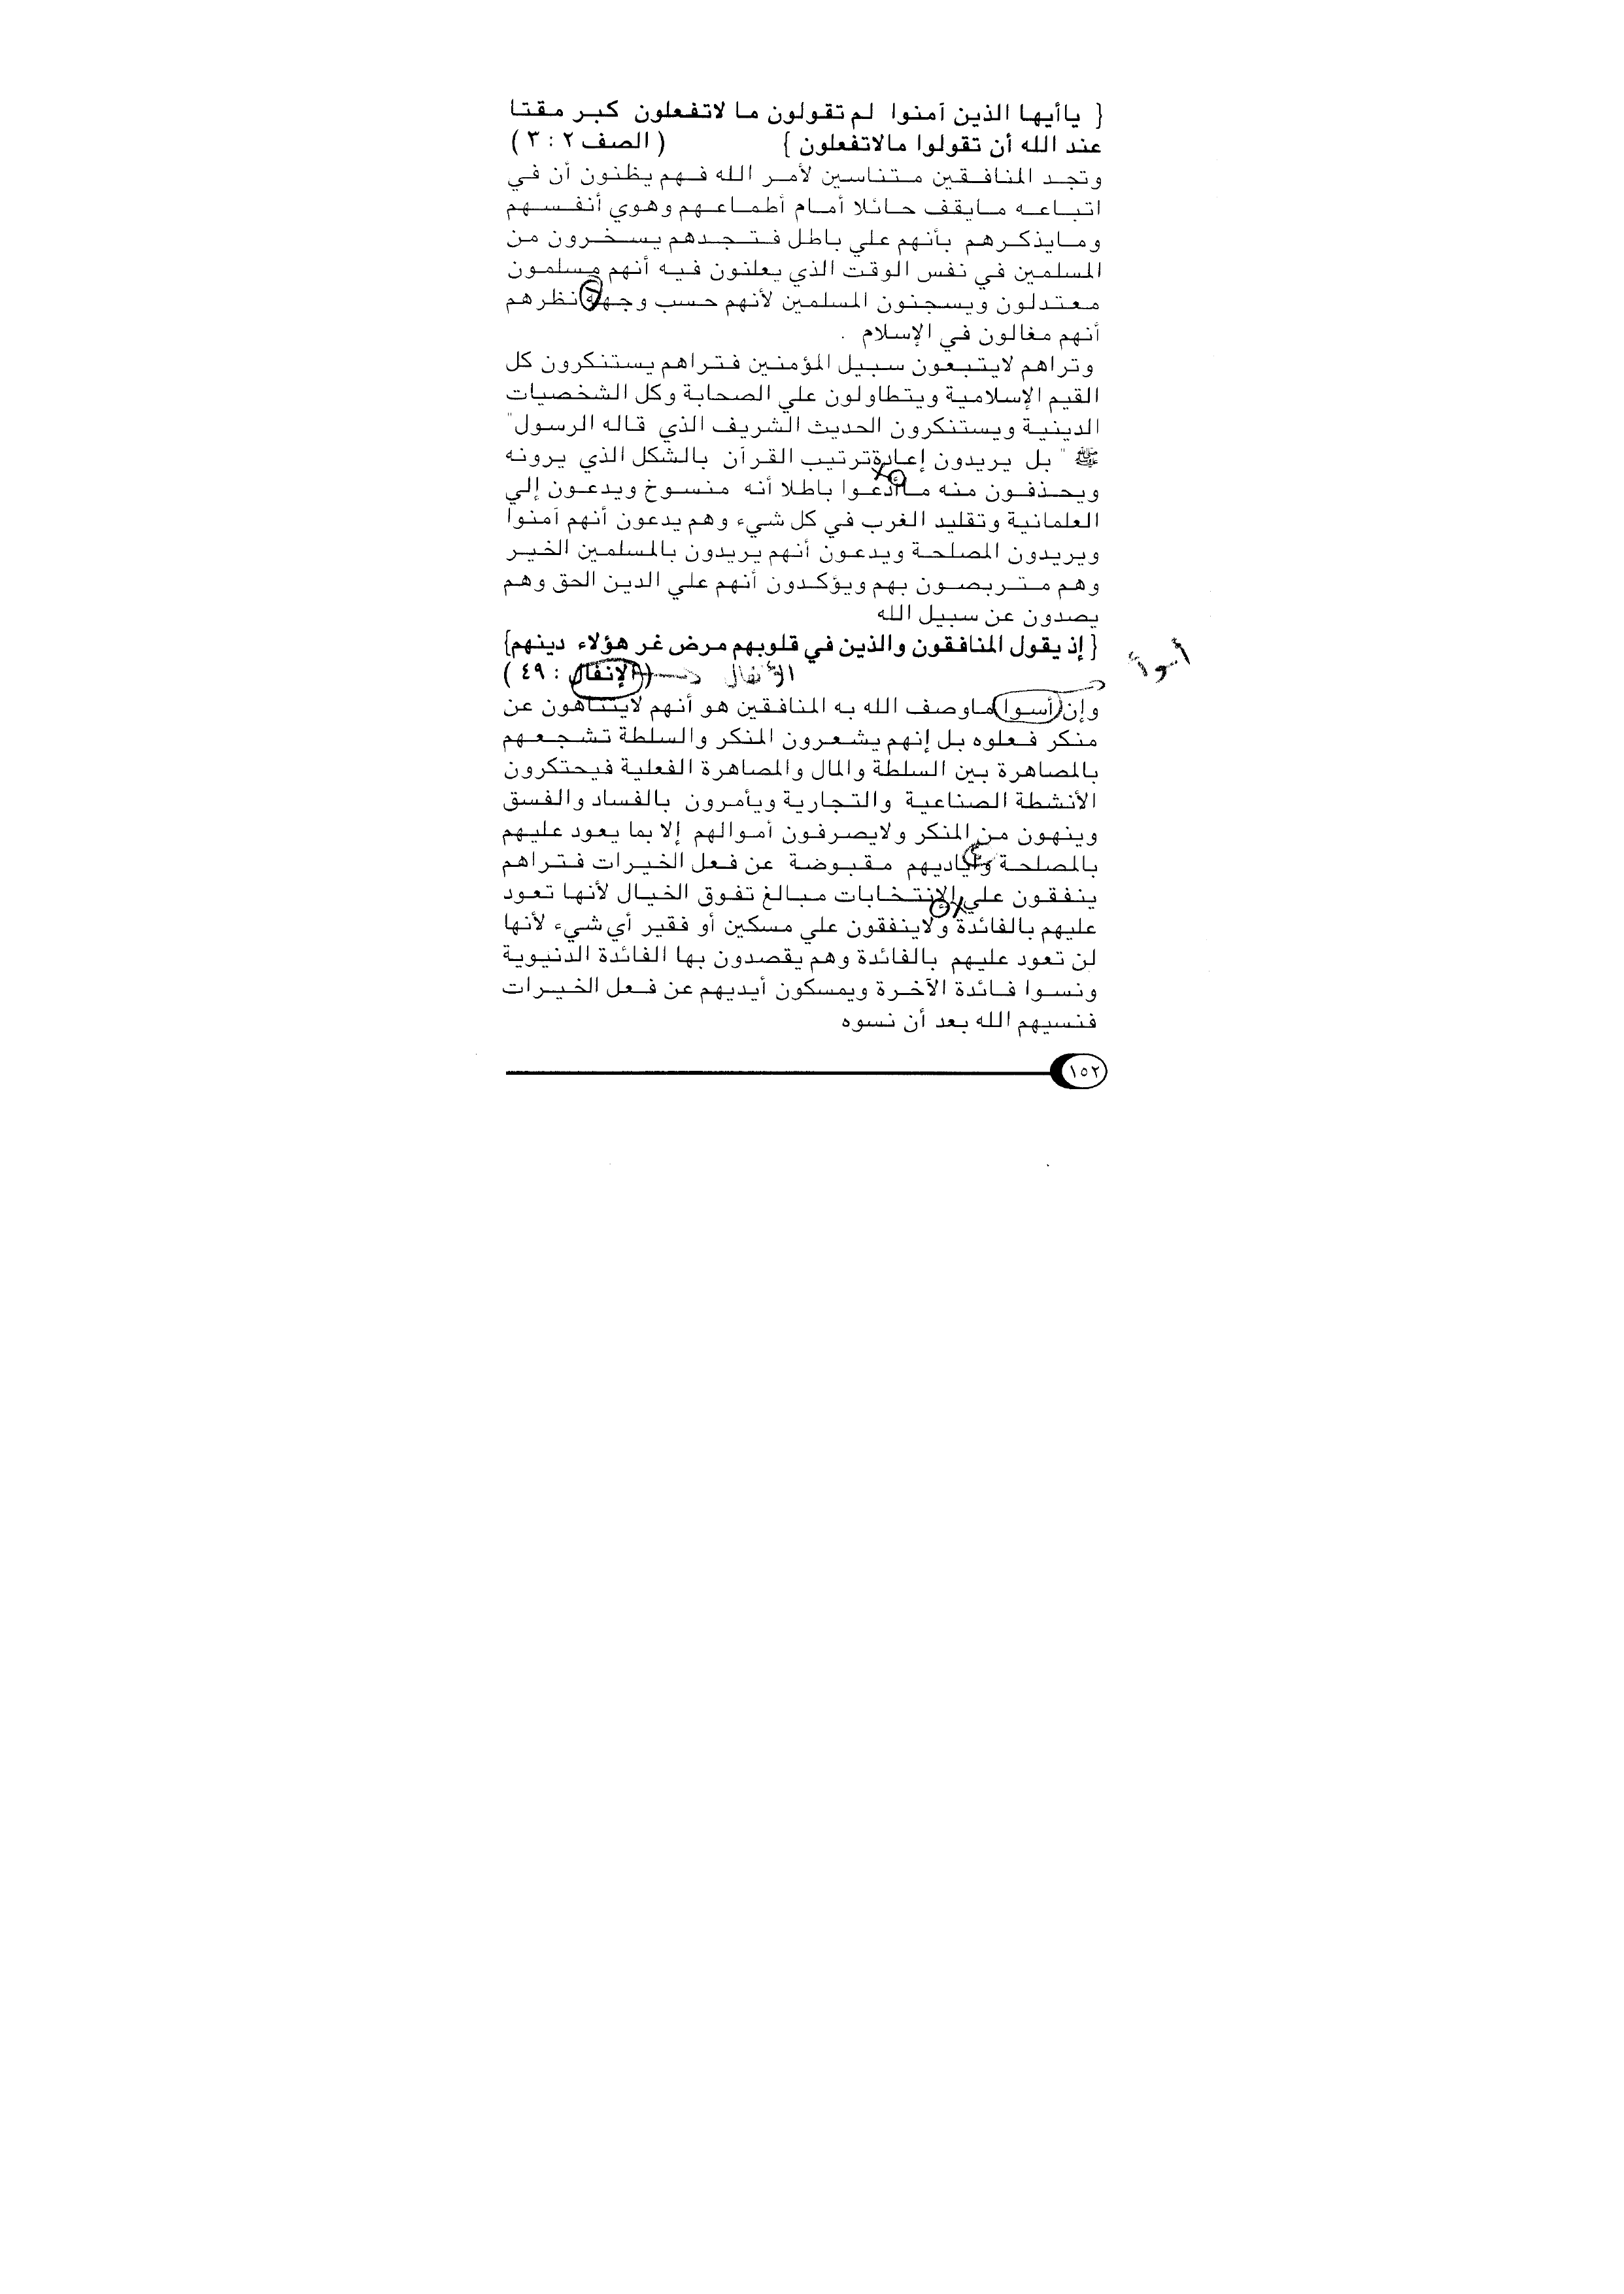 { ياأيها الذين آمنوا لم تقولون ما لاتفعلون كبر مقتا
عند الله أن تقولوا مالاتفعلون } ( الصف ٢ : ٣ )
وتجد المنافقين متناسين لأمر الله فهم يظنون أن في
اتباعه مايقف حائلا أمام أطماعهم وهوي أنفسهم
ومايذكرهم بأنهم علي باطل فتجدهم يسخرون من
المسلمين في نفس الوقت الذي يعلنون فيه أنهم مسلمون
معتدلون ويسجنون المسلمين لأنهم حسب وجهة نظرهم
أنهم مغالون في الإسلام .
وتراهم لايتبعون سبيل المؤمنين فتراهم يستنكرون كل
القيم الإسلامية ويتطاولون علي الصحابة وكل الشخصيات
الدينية ويستنكرون الحديث الشريف الذي قاله الرسول"
ﷺ " بل يريدون إعادة ترتيب القرآن بالشكل الذي يرونه
ويحذفون منه ما أدعوا باطلا أنه منسوخ ويدعون إلي
العلمانية وتقليد الغرب في كل شيء وهم يدعون أنهم آمنوا
ويريدون المصلحة ويدعون أنهم يريدون بالمسلمين الخير
وهم متربصون بهم ويؤكدون أنهم علي الدين الحق وهم
يصدون عن سبيل الله
{ إذ يقول المنافقون والذين في قلوبهم مرض غر هؤلاء دينهم}
الأنفال (الإنفال : ٤٩ )
أسوأ
وإن أسوا ماوصف الله به المنافقين هو أنهم لايتناهون عن
منكر فعلوه بل إنهم يشعرون المنكر والسلطة تشجعهم
بالمصاهرة بين السلطة والمال والمصاهرة الفعلية فيحتكرون
الأنشطة الصناعية والتجارية ويأمرون بالفساد والفسق
وينهون من المنكر ولايصرفون أموالهم إلا بما يعود عليهم
بالمصلحة وأياديهم مقبوضة عن فعل الخيرات فتراهم
ينفقون علي الإنتخابات مبالغ تفوق الخيال لأنها تعود
عليهم بالفائدة ولاينفقون علي مسكين أو فقير أي شيء لأنها
لن تعود عليهم بالفائدة وهم يقصدون بها الفائدة الدنيوية
ونسوا فائدة الآخرة ويمسكون أيديهم عن فعل الخيرات
فنسيهم الله بعد أن نسوه
١٥٢